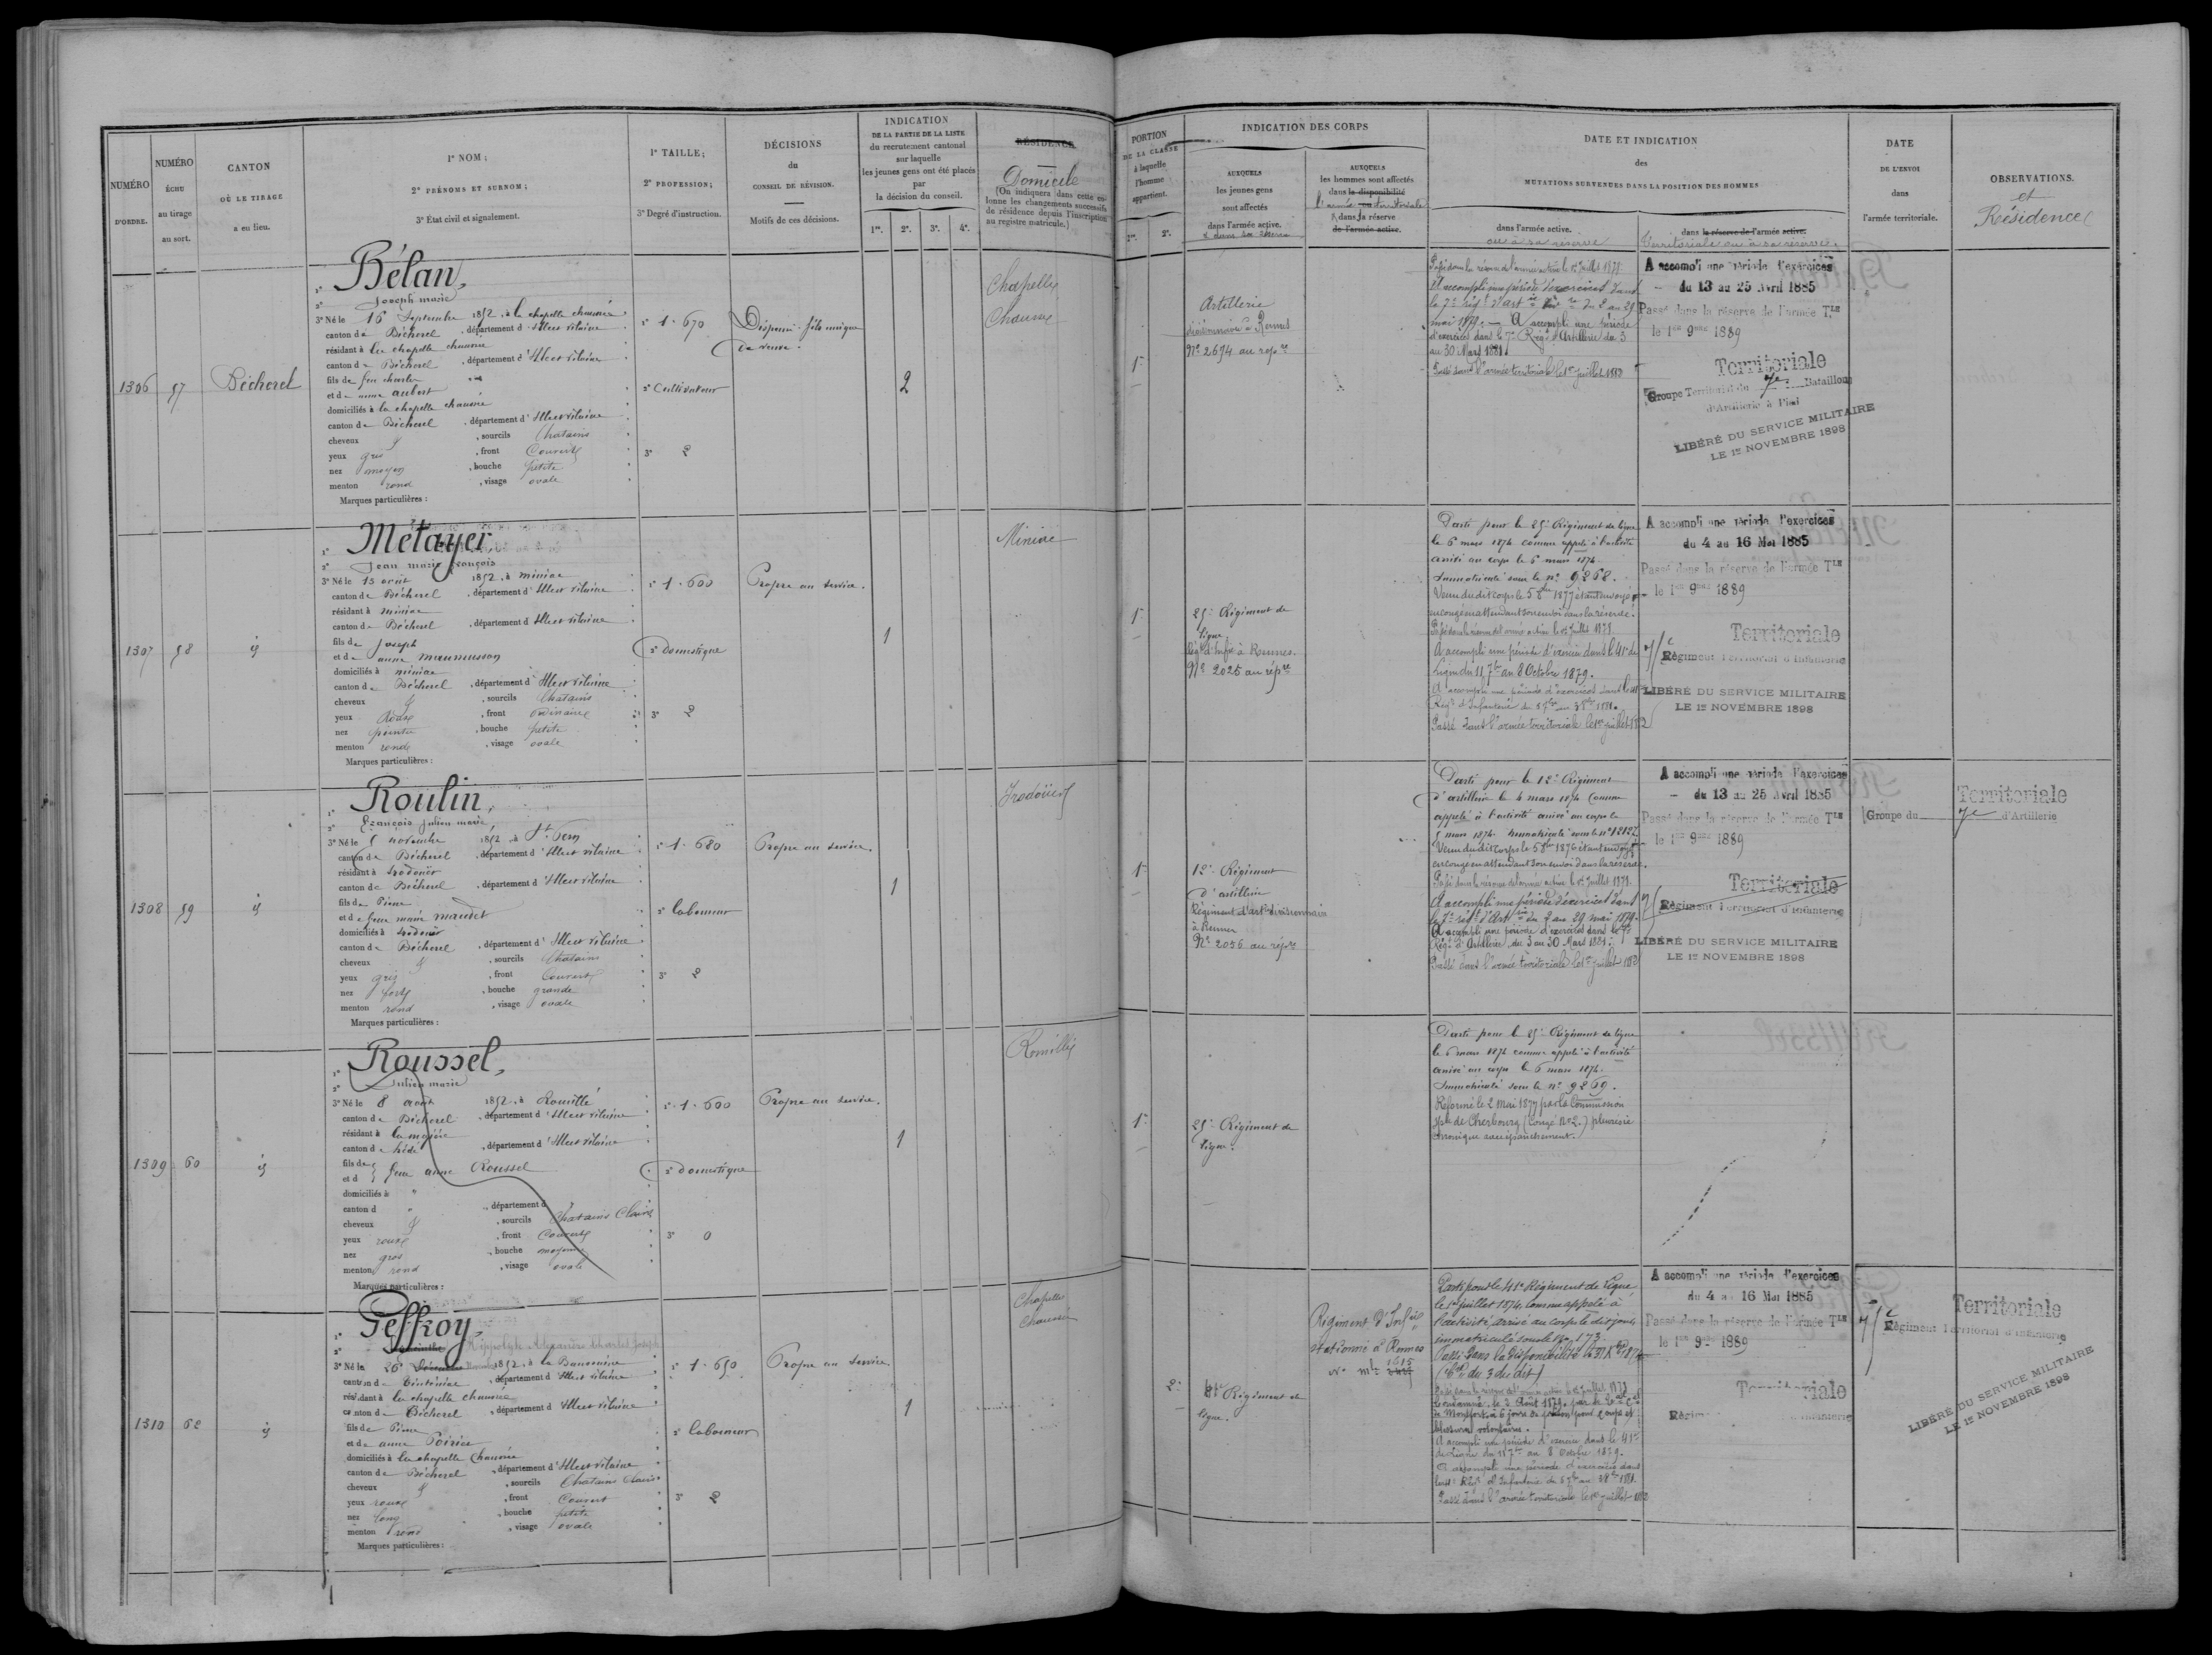 NUMÉRO
D'ORDRE.
NUMÉRO
ÉCHU
au tirage
au sort.
CANTON
OÙ LE TIRAGE
a eu lieu.
1° NOM;
2° PRÉNOMS ET SURNOM;
3° État civil et signalement.
1° TAILLE;
2° PROFESSION;
3° Degré d'instruction.
DÉCISIONS
du
CONSEIL DE RÉVISION.
Motifs de ces décisions.
INDICATION
DE LA PARTIE DE LA LISTE
du recrutement cantonal
sur laquelle
les jeunes gens ont été placés
par
la décision du conseil.
1re. 2e. 3e. 4e.
RÉSIDENCE
Domicile
(On indiquera dans cette colonne les changements successifs
de résidence depuis l'inscription
au registre matricule.)
PORTION
DE LA CLASSE
à laquelle
l'homme
appartient.
1re. 2e.
INDICATION DES CORPS
AUXQUELS
les jeunes gens
sont affectés
dans l'armée active.
AUXQUELS
les hommes sont affectés
dans la disponibilité
l'armée territoriale
dans la réserve
de l'armée active.
DATE ET INDICATION
des
MUTATIONS SURVENUES DANS LA POSITION DES HOMMES
dans l'armée active.
ou à sa réserve
dans la réserve de l'armée active.
Territoriale ou à sa réserve.
DATE
DE L'ENVOI
dans
l'armée territoriale.
OBSERVATIONS.
et
Résidence
1306 57 Bécherel
1° Bélan,
2° Joseph marie
3° Né le 16 Septembre 1852, à la chapelle chaussée
canton de Bécherel, département d'Ille et vilaine
résidant à la chapelle chaussée
canton de Bécherel, département d'Ille et vilaine
fils de feu charles
et de anne aubert
domiciliés à la chapelle chaussée
canton de Bécherel, département d'Ille et vilaine
cheveux &, sourcils Chatains
yeux gris, front Couvert
nez moyen, bouche petite
menton rond, visage ovale
Marques particulières :
1° 1.670
2° Cultivateur
3° 2
Dispensé. fils unique
de veuve.
2
Chapelle
Chaussée
1re
Artillerie
divisionnaire à Rennes
No 2694 au répre
Passé dans la réserve de l'armée active le 1er Juillet 1878.
A accompli une période d'exercices dans
le 7e régt d'artie du 2 au 29
mai 1879. — A accompli une période
d'exercices dans le 7e Régt d'Artillerie du 3
au 30 Mars 1881.
Passé dans l'armée territoriale le 1er juillet 1882
A accompli une période d'exercices
du 13 au 25 Avril 1885
Passé dans la réserve de l'armée Tle
le 1er 9bre 1889
Territoriale
Groupe Territorial du 7e Bataillon
d'Artillerie à Pied
LIBÉRÉ DU SERVICE MILITAIRE
LE 1er NOVEMBRE 1898
1307 58 id
1° Métayer,
2° Jean marie françois
3° Né le 15 août 1852, à miniac
canton de Bécherel, département d'Ille et vilaine
résidant à miniac
canton de Bécherel, département d'Ille et vilaine
fils de Joseph
et de anne maumusson
domiciliés à miniac
canton de Bécherel, département d'Ille et vilaine
cheveux &, sourcils Chatains
yeux roux, front ordinaire
nez pointu, bouche petite
menton rond, visage ovale
Marques particulières :
1° 1.600
2° Domestique
3° 2
Propre au service.
1
Miniac
1re
25e Régiment de
ligne
Régt d'Infie à Rennes.
No 2025 au répre
Parti pour le 25e Régiment de ligne
le 6 mars 1874 comme appelé à l'activité
arrivé au corps le 6 mars 1874.
Immatriculé sous le no 9268.
Venu dudit corps le 5 8bre 1877 étant envoyé
en congé en attendant son envoi dans la réserve.
Passé dans la réserve de l'armée active le 1er Juillet 1878.
A accompli une période d'exercice dans le 41e de
Ligne du 11 7bre au 8 Octobre 1879.
A accompli une période d'exercices dans le 41e
Régt d'Infanterie du 5 7bre au 3 8bre 1881.
Passé dans l'armée territoriale le 1er juillet 1882
A accompli une période d'exercices
du 4 au 16 Mai 1885
Passé dans la réserve de l'armée Tle
le 1er 9bre 1889
Territoriale
Régiment Territorial d'Infanterie
LIBÉRÉ DU SERVICE MILITAIRE
LE 1er NOVEMBRE 1898
1308 59 id
1° Roulin,
2° François Julien marie
3° Né le 5 novembre 1852, à St Pern
canton de Bécherel, département d'Ille et vilaine
résidant à Irodouër
canton de Bécherel, département d'Ille et vilaine
fils de Pierre
et de feue marie maudet
domiciliés à Irodouër
canton de Bécherel, département d'Ille et vilaine
cheveux &, sourcils Chatains
yeux gris, front Couvert
nez fort, bouche grande
menton rond, visage ovale
Marques particulières :
1° 1.680
2° laboureur
3° 2
Propre au service.
1
Irodouër
1re
12e Régiment
d'artillerie
Régiment d'artie divisionnaire
à Rennes
No 2056 au répre
Parti pour le 12e Régiment
d'artillerie le 4 mars 1874 comme
appelé à l'activité arrivé au corps le
5 mars 1874. Immatriculé sous le no 12127
Venu dudit corps le 5 8bre 1876 étant envoyé
en congé en attendant son envoi dans la réserve.
Passé dans la réserve de l'armée active le 1er Juillet 1878.
A accompli une période d'exercices dans
le 7e régt d'Artie du 2 au 29 mai 1879.
A accompli une période d'exercices dans le 7e
Régt d'Artillerie du 3 au 30 Mars 1881.
Passé dans l'armée territoriale le 1er juillet 1882
A accompli une période d'exercices
du 13 au 25 Avril 1885
Passé dans la réserve de l'armée Tle
le 1er 9bre 1889
Territoriale
Régiment Territorial d'Infanterie
LIBÉRÉ DU SERVICE MILITAIRE
LE 1er NOVEMBRE 1898
Territoriale
Groupe du 7e d'Artillerie
1309 60 id
1° Roussel,
2° Julien marie
3° Né le 8 août 1852, à Romillé
canton de Bécherel, département d'Ille et vilaine
résidant à la mézière
canton de hédé, département d'Ille et vilaine
fils de
et d feue anne Roussel
domiciliés à "
canton d ", département d
cheveux &, sourcils Chatains Clairs
yeux roux, front Couvert
nez gros, bouche moyenne
menton rond, visage ovale
Marques particulières :
1° 1.600
2° Domestique
3° 0
Propre au service.
1
Romillé
1re
25e Régiment de
ligne.
Parti pour le 25e Régiment de ligne
le 6 mars 1874 comme appelé à l'activité
arrivé au corps le 6 mars 1874.
Immatriculé sous le no 9269.
Réformé le 2 Mai 1877 par la Commission
Sple de Cherbourg (Congé No 2.) pleurésie
chronique avec épanchement.
1310 62 id
1° Geffroy,
2° Hippolyte Alexandre Charles Joseph
3° Né le 26 Novembre 1852, à la Baussaine
canton de Tinténiac, département d'Ille et vilaine
résidant à la chapelle chaussée
canton de Bécherel, département d'Ille et vilaine
fils de Pierre
et de anne Poirier
domiciliés à la chapelle Chaussée
canton de Bécherel, département d'Ille et vilaine
cheveux &, sourcils Chatains Clairs
yeux roux, front Couvert
nez long, bouche petite
menton rond, visage ovale
Marques particulières :
1° 1.650
2° laboureur
3° 2
Propre au service.
1
Chapelle
Chaussée
2e
41e Régiment de
ligne.
Régiment d'Infie
stationné à Rennes
No mle 1615
Parti pour le 41e Régiment de Ligne
le 1er juillet 1874, comme appelé à
l'activité, arrivé au corps le dit jour,
immatriculé sous le No 173.
Passé dans la disponibilité le 31 Xbre 1874
Passé dans la réserve de l'armée active le 1er Juillet 1878
Condamné le 2 Août 1879
de Montfort à 6 jours de prison pour coups et
blessures volontaires.
A accompli une période d'exercice dans le 41e
de Ligne du 11 7bre au 8 Octobre 1879.
A accompli une période d'exercices dans
le 41e Régt d'Infanterie du 5 7bre au 3 8bre 1881.
Passé dans l'armée territoriale le 1er juillet 1882
A accompli une période d'exercices
du 4 au 16 Mai 1885
Passé dans la réserve de l'armée Tle
le 1er 9bre 1889
Territoriale
Territoriale
Régiment Territorial d'Infanterie
LIBÉRÉ DU SERVICE MILITAIRE
LE 1er NOVEMBRE 1898